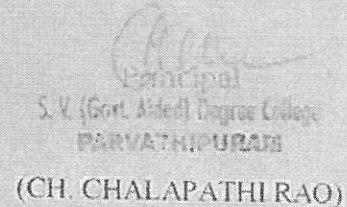 Principal
S. V. (Govt. Aided) Degree College
PARVATHIPURAM
(CH. CHALAPATHI RAO)